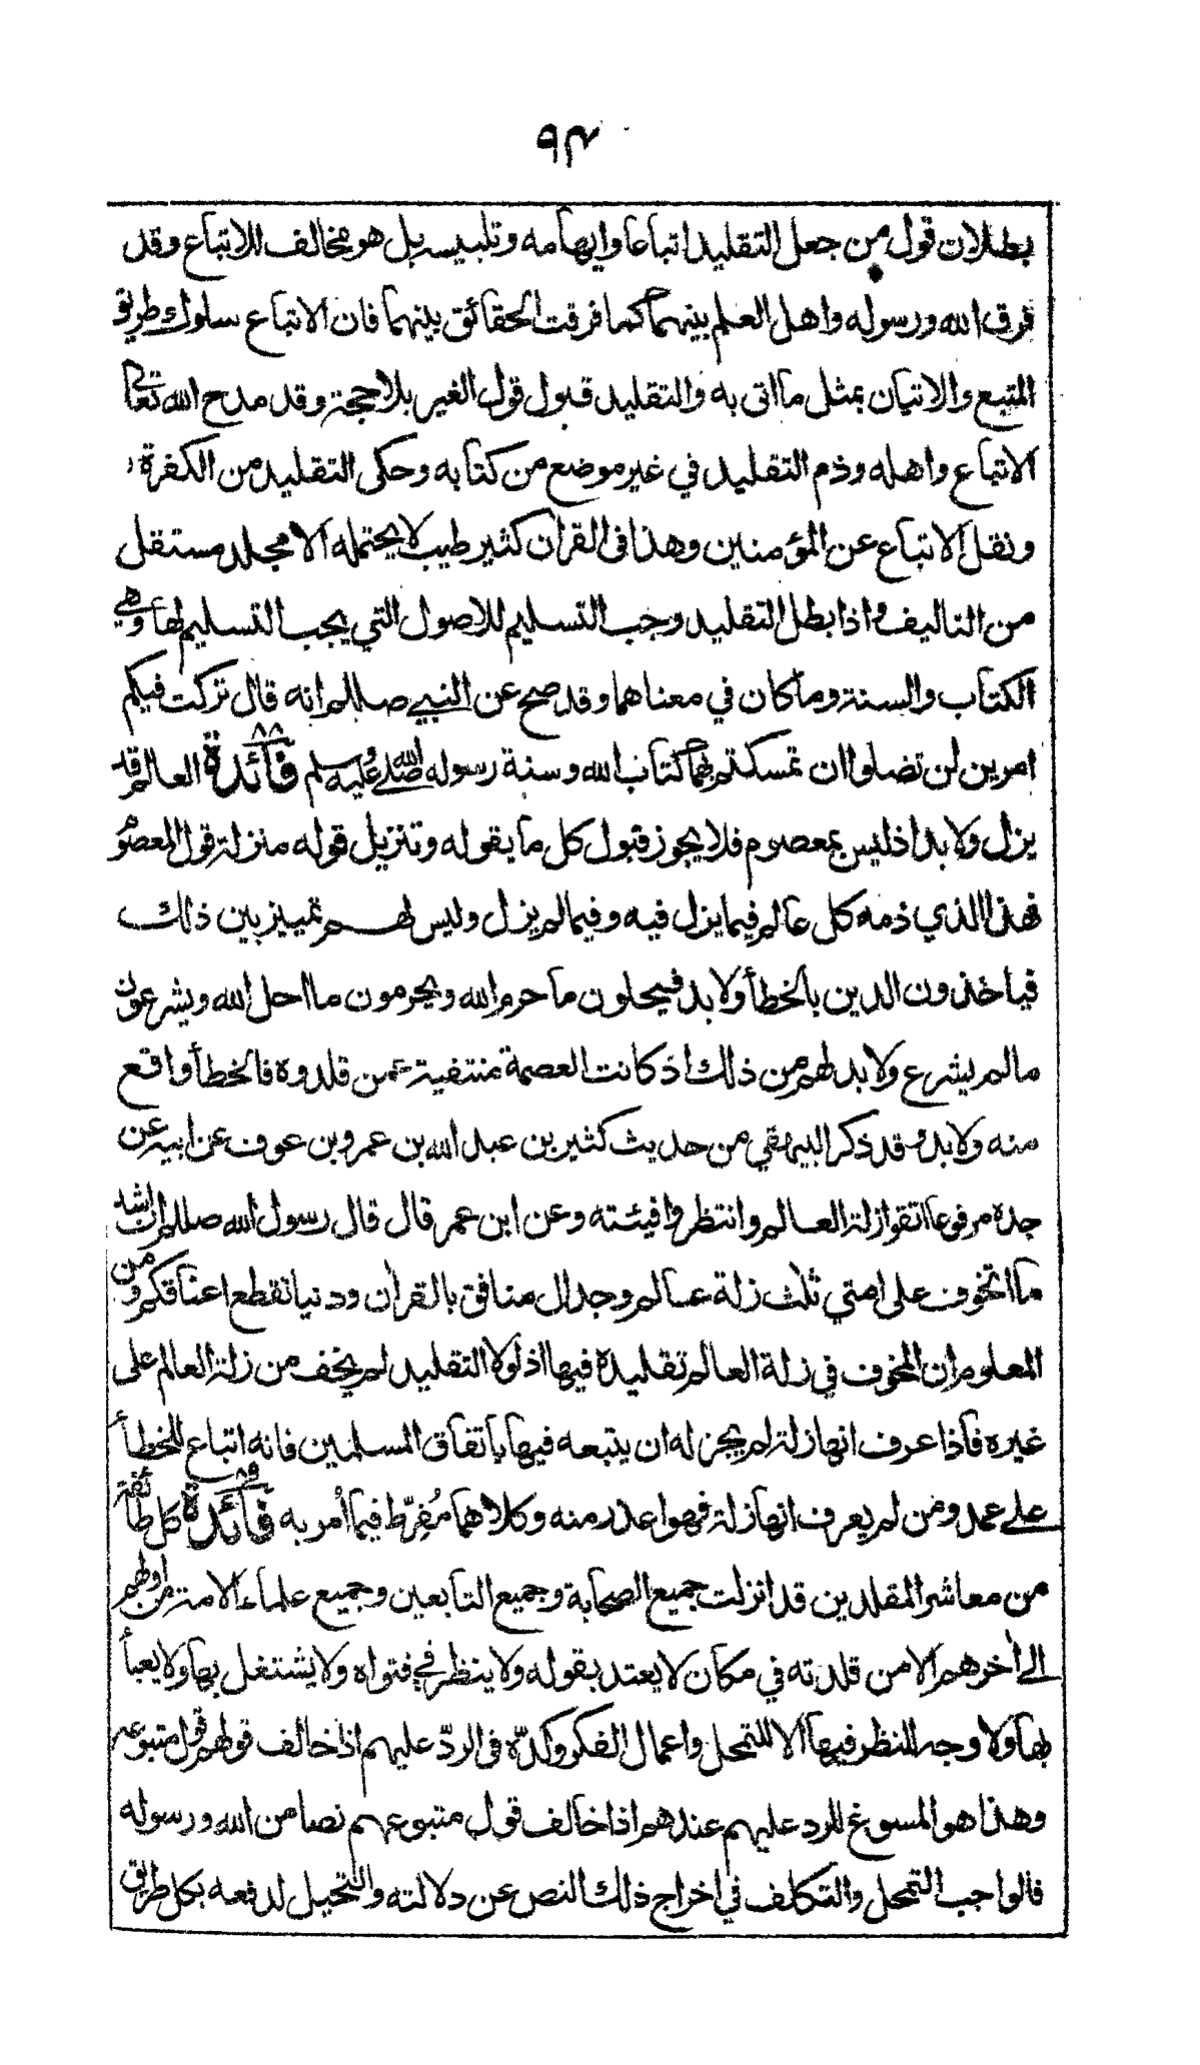 ٩٤
بطلان قول من جعل التقليد اتباعا وايهامه وتلبيسه بل هو مخالف للاتباع وقد
فرق الله ورسوله واهل العلم بينهما كما فرقت الحقائق بينهما فان الاتباع سلوك طريق
المتبع والاتيان بمثل ما اتى به والتقليد قبول قول الغير بلا حجة وقد مدح الله تعالى
الاتباع واهله وذم التقليد في غير موضع من كتابه وحكى التقليد من الكفرة
ونقل الاتباع عن المؤمنين وهذا فى القرآن كثير طيب لا يحتمله الا مجلد مستقل
من التاليف واذا بطل التقليد وجب التسليم للاصول التي يجب التسليم لها وهي
الكتاب والسنة وما كان في معناهما وقد صح عن النبي صللم انه قال تركت فيكم
امرين لن تضلوا ان تمسكتم بهما كتاب الله وسنة رسوله صلى الله عليه وسلم فائدة ٨٨ العالم قد
يزل ولا بد اذ ليس بمعصوم فلا يجوز قبول كل ما يقوله وتنزيل قوله منزلة قول المعصوم
فهذا الذي ذمه كل عالم فيما يزل فيه وفيما لم يزل وليس لهم تمييز بين ذلك
فياخذون الدين بالخطأ ولا بد فيحلون ما حرم الله ويحرمون ما احل الله ويشرعون
مالم يشرع ولا بد لهم من ذلك اذ كانت العصمة منتفية عمن قلدوه فالخطأ واقع
منه ولا بد وقد ذكر البيهقي من حديث كثير بن عبد الله بن عمرو بن عوف عن ابيه عن
جده مرفوعا اتقوا زلة العالم وانتظروا فيئته وعن ابن عمر قال قال رسول الله صللم ان اشد
ما اتخوف على امتي ثلث زلة عالم وجدال منافق بالقرآن ودنيا تقطع اعناقكم ومن
المعلوم ان المخوف في زلة العالم تقليده فيها اذ لولا التقليد لم يخف من زلة العالم على
غيره فاذا عرف انها زلة لم يجز له ان يتبعه فيها باتفاق المسلمين فانه اتباع للخطأ
على عمد ومن لم يعرف انها زلة فهو اعذر منه وكلاهما مُفرِّط فيما أُمر به فائدة ٨٩ كل طائفة
من معاشر المقلدين قد انزلت جميع الصحابة وجميع التابعين وجميع علماء الامة من اولهم
الى أخرهم الا من قلدته في مكان لا يعتد بقوله ولا ينظر في فتواه ولا يشتغل بها ولا يعبأ
بها ولا وجه للنظر فيها الا للتمحل واعمال الفكر وكدّه فى الردّ عليهم اذا خالف قولهم قول متبوعه
وهذا هو المسوغ للرد عليهم عندهم اذا خالف قول متبوعهم نصا من الله ورسوله
فالواجب التمحل والتكلف في اخراج ذلك النص عن دلالته والتحيل لدفعه بكل طريق